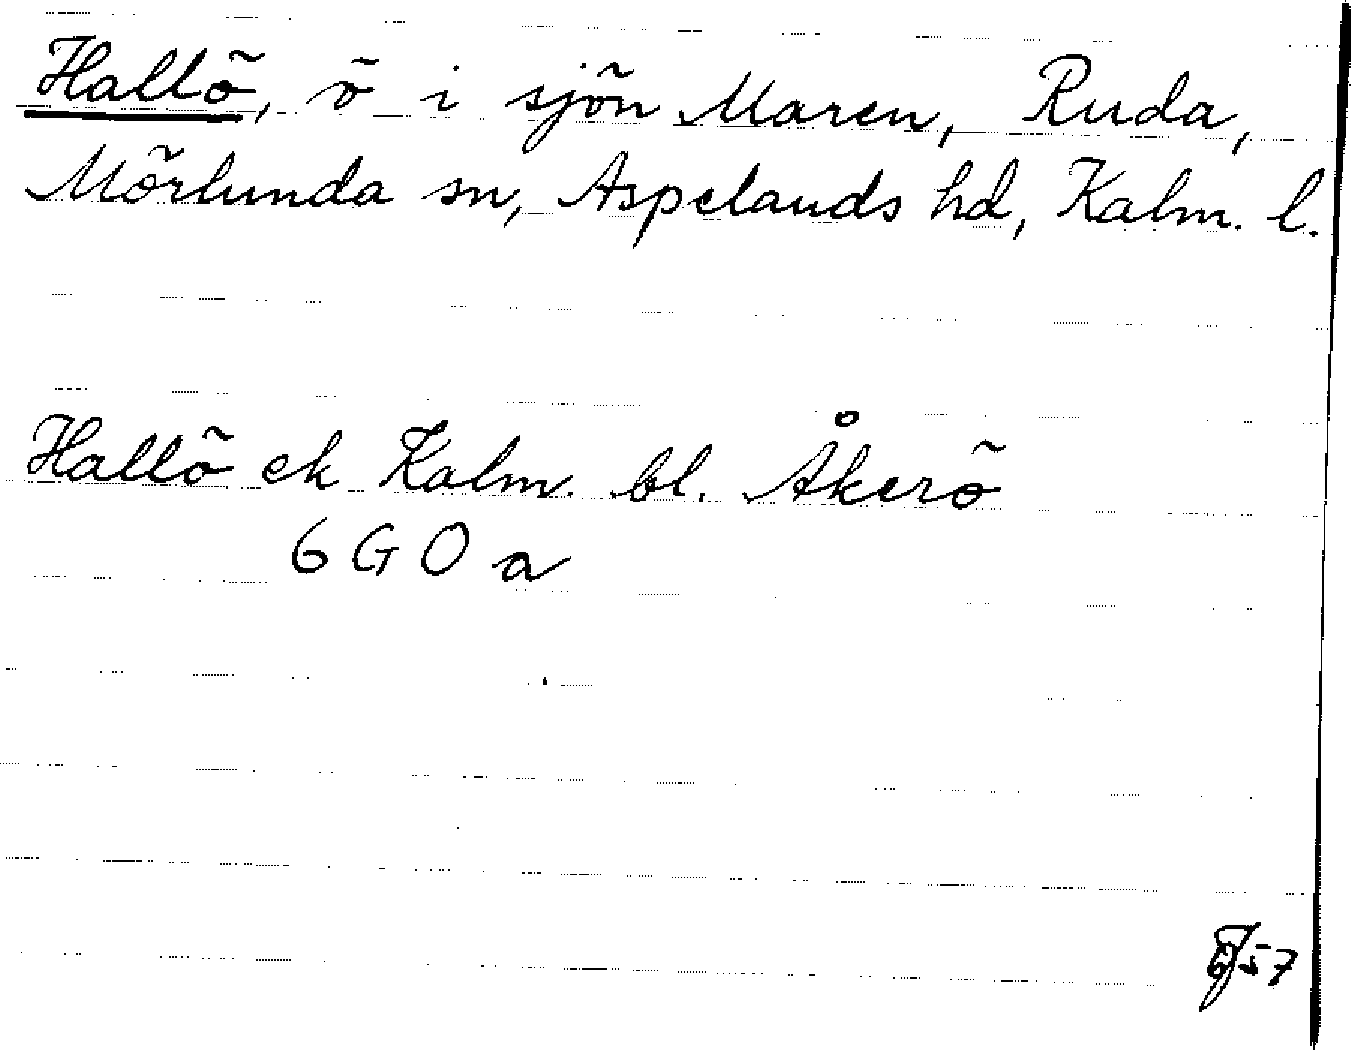 Hallö, ö i sjön Maren, Ruda,
Mörlunda sn, Aspelands hd, Kalm. l.
Hallö ek Kalm. bl. Åkerö
6 G O a
57